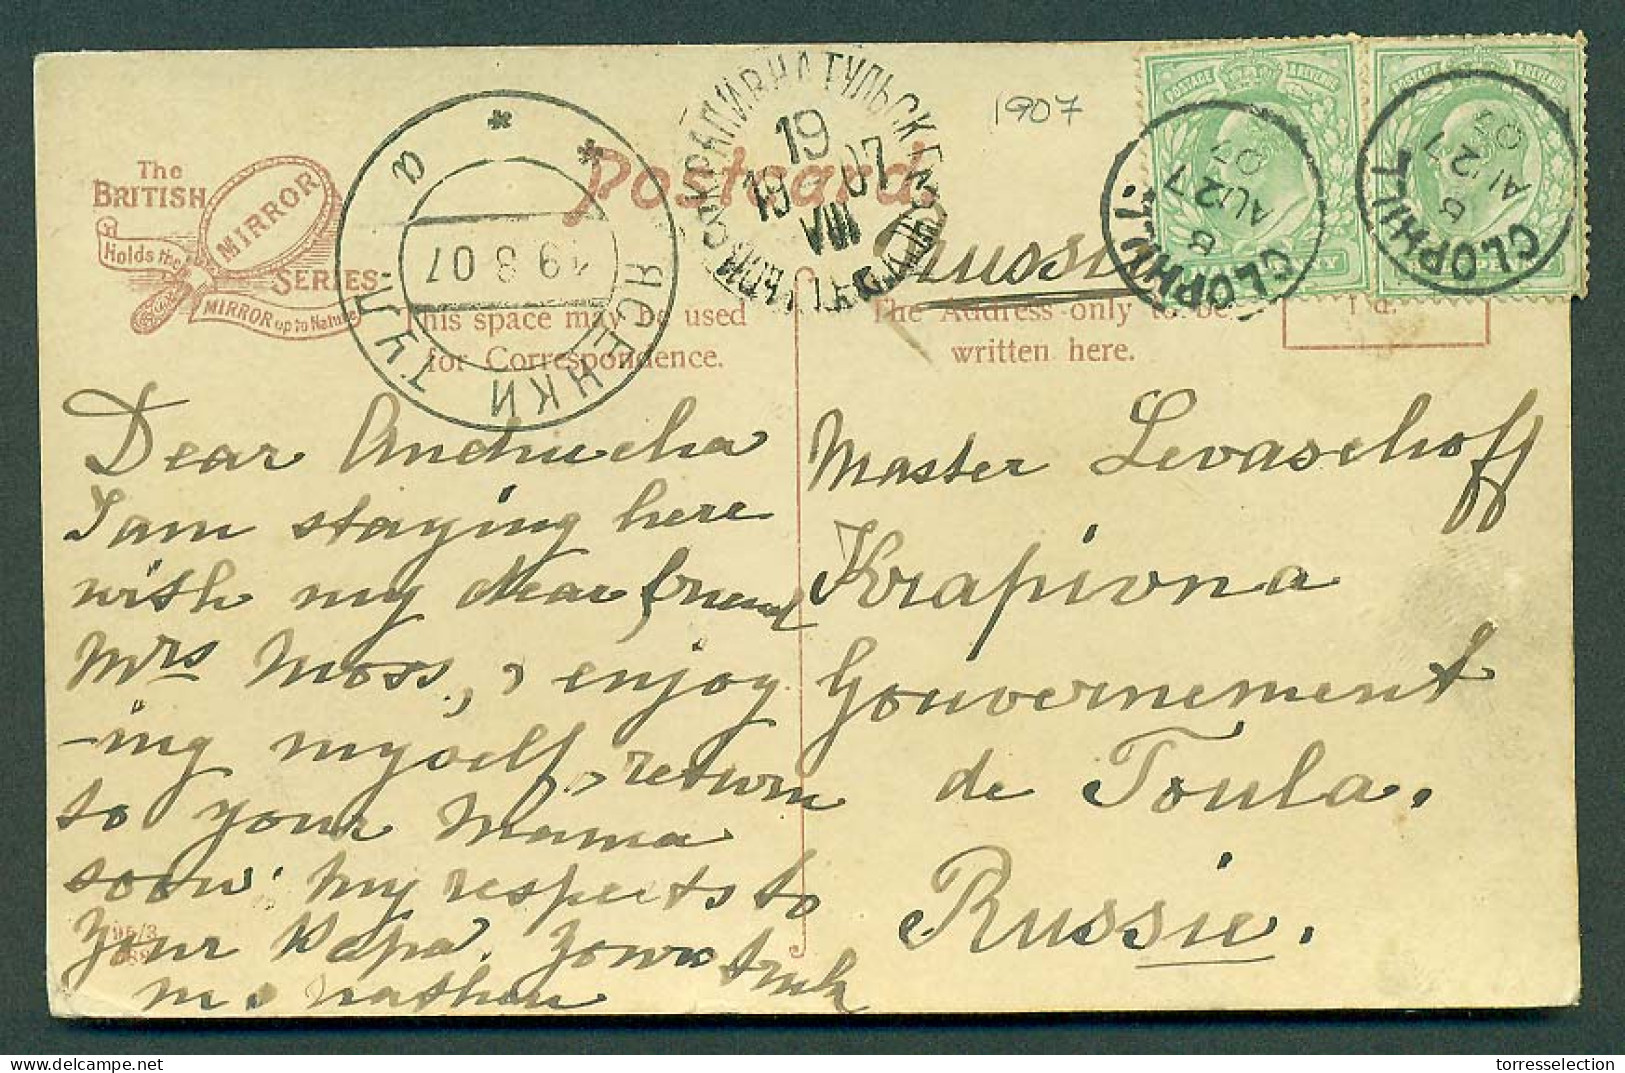 1907
Postcard
Russie
The
BRITISH
MIRROR
Holds the
SERIES
MIRROR up to Nature
This space may be used
for Correspondence.
The Address only to be
written here.
POSTAGE & REVENUE
POSTAGE & REVENUE
CLOPHILL
8
AU 27
07
CLOPHILL
8
AU 27
07
КРАПИВНА ТУЛЬСК
19
VIII
19 07
ЯСЕНКИ ТУЛ.
19 8 07
а
Dear Andrucha
I am staying here
with my dear friend
Mrs Moss, & enjoy
-ing myself, return
to your Mama
soon. My respects to
Your Papa. Yours truly
M. Nathan
Master Levaschoff
Krapivna
Gouvernement
de Toula.
Russie.
torresselection